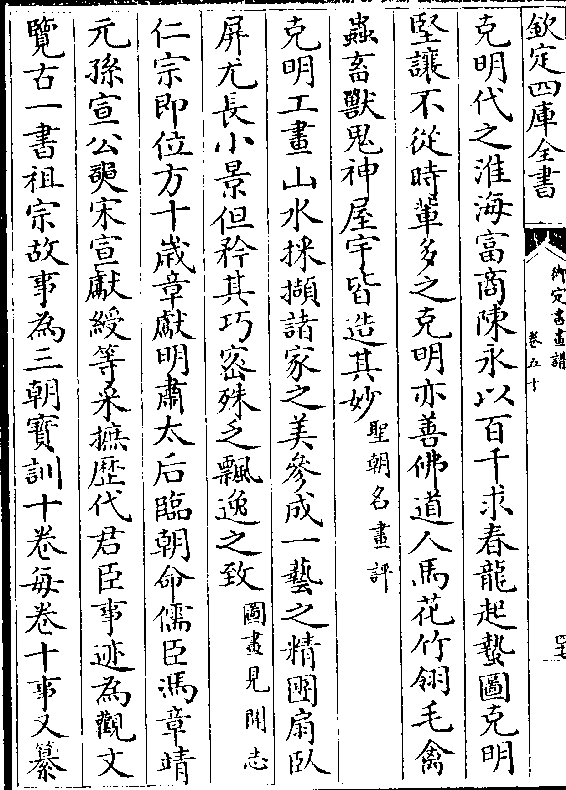 欽定四庫全書
御定書畫譜
卷五十
克明代之淮海富商陳永以百千求春龍起蟄圖克明
堅讓不從時輩多之克明亦善佛道人馬花竹翎毛禽
蟲畜獸鬼神屋宇皆造其妙聖朝名畫評
克明工畫山水採擷諸家之美參成一藝之精團扇臥
屏尤長小景但矜其巧密殊乏飄逸之致圖畫見聞志
仁宗即位方十歲章獻明肅太后臨朝命儒臣馮章靖
元孫宣公奭宋宣獻綬等采摭歴代君臣事迹為觀文
覽古一書祖宗故事為三朝寶訓十卷每卷十事又纂